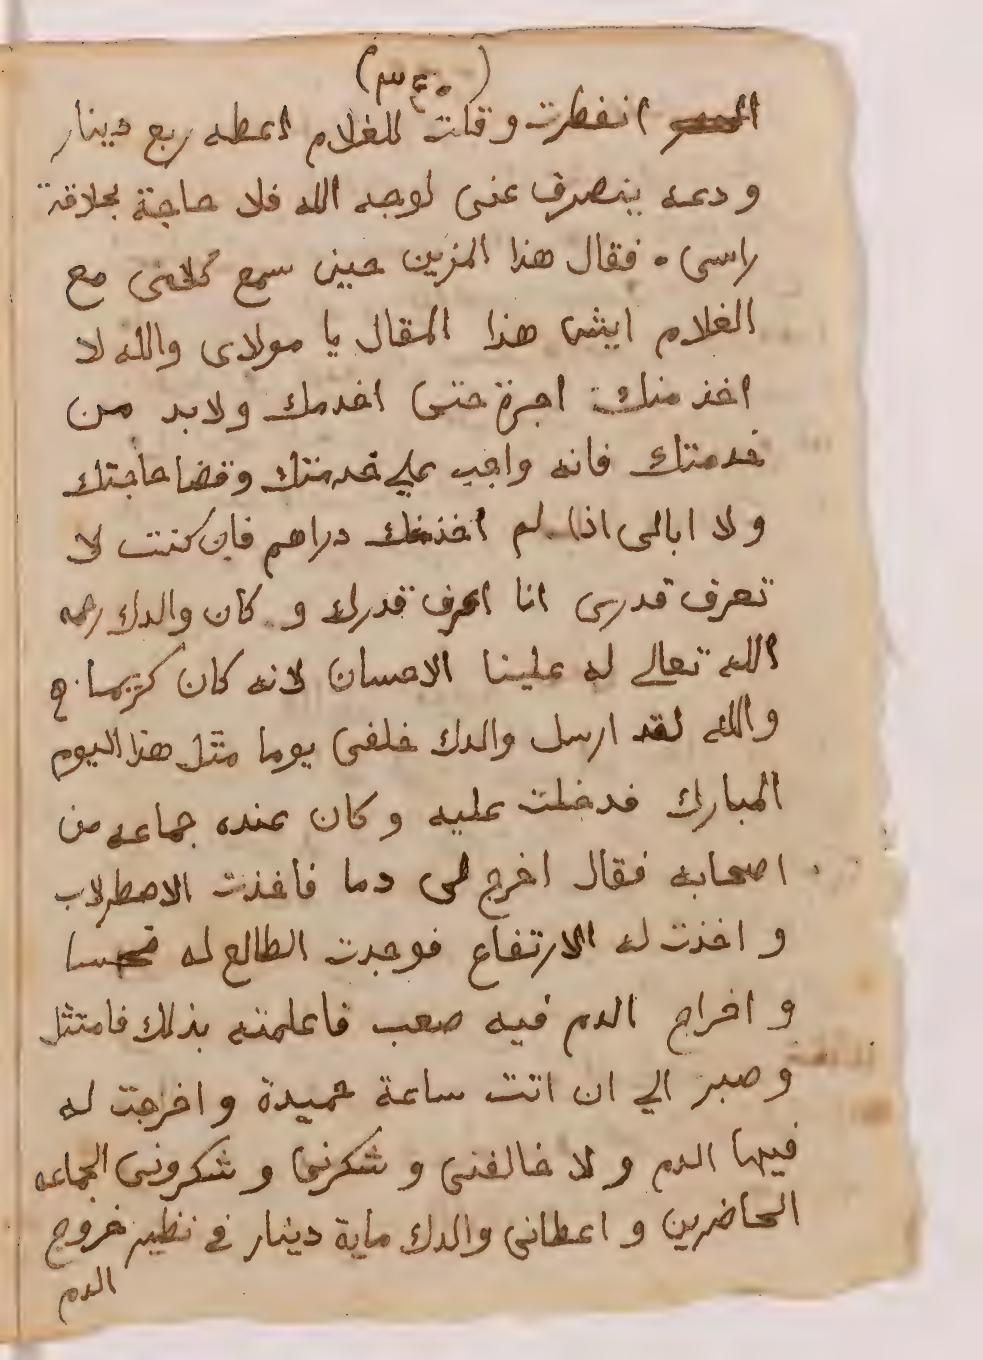 (٣٤٠)
انفطرت وقلت للغلام اعطه ربع دينار
ودعه ينصرف عنى لوجه الله فلا حاجة بحلاقة
راسى . فقال هذا المزين حين سمع كلامى مع
الغلام ايش هذا المقال يا مولاى والله لا
اخذ منك اجرة حتى اخدمك ولابد من
خدمتك فانه واجب علي خدمتك وقضا حاجتك
ولا ابالى اذا لم اخذ منك دراهم فان كنت لا
تعرف قدرى انا اعرف قدرك و كان والدك رحمه
الله تعالي له علينا الاحسان لانه كان كريما
والله لقد ارسل والدك خلفى يوما مثل هذا اليوم
المبارك فدخلت عليه وكان عنده جماعه من
اصحابه فقال اخرج لى دما فاخذت الاصطرلاب
و اخذت له الارتفاع فوجدت الطالع له نحسا
و اخراج الدم فيه صعب فاعلمته بذلك فامتثل
وصبر الي ان اتت ساعة حميدة و اخرجت له
فيها الدم و لا خالفنى و شكرنى و شكرونى الجماعه
الحاضرين و اعطانى والدك ماية دينار في نظير خروج
الدم